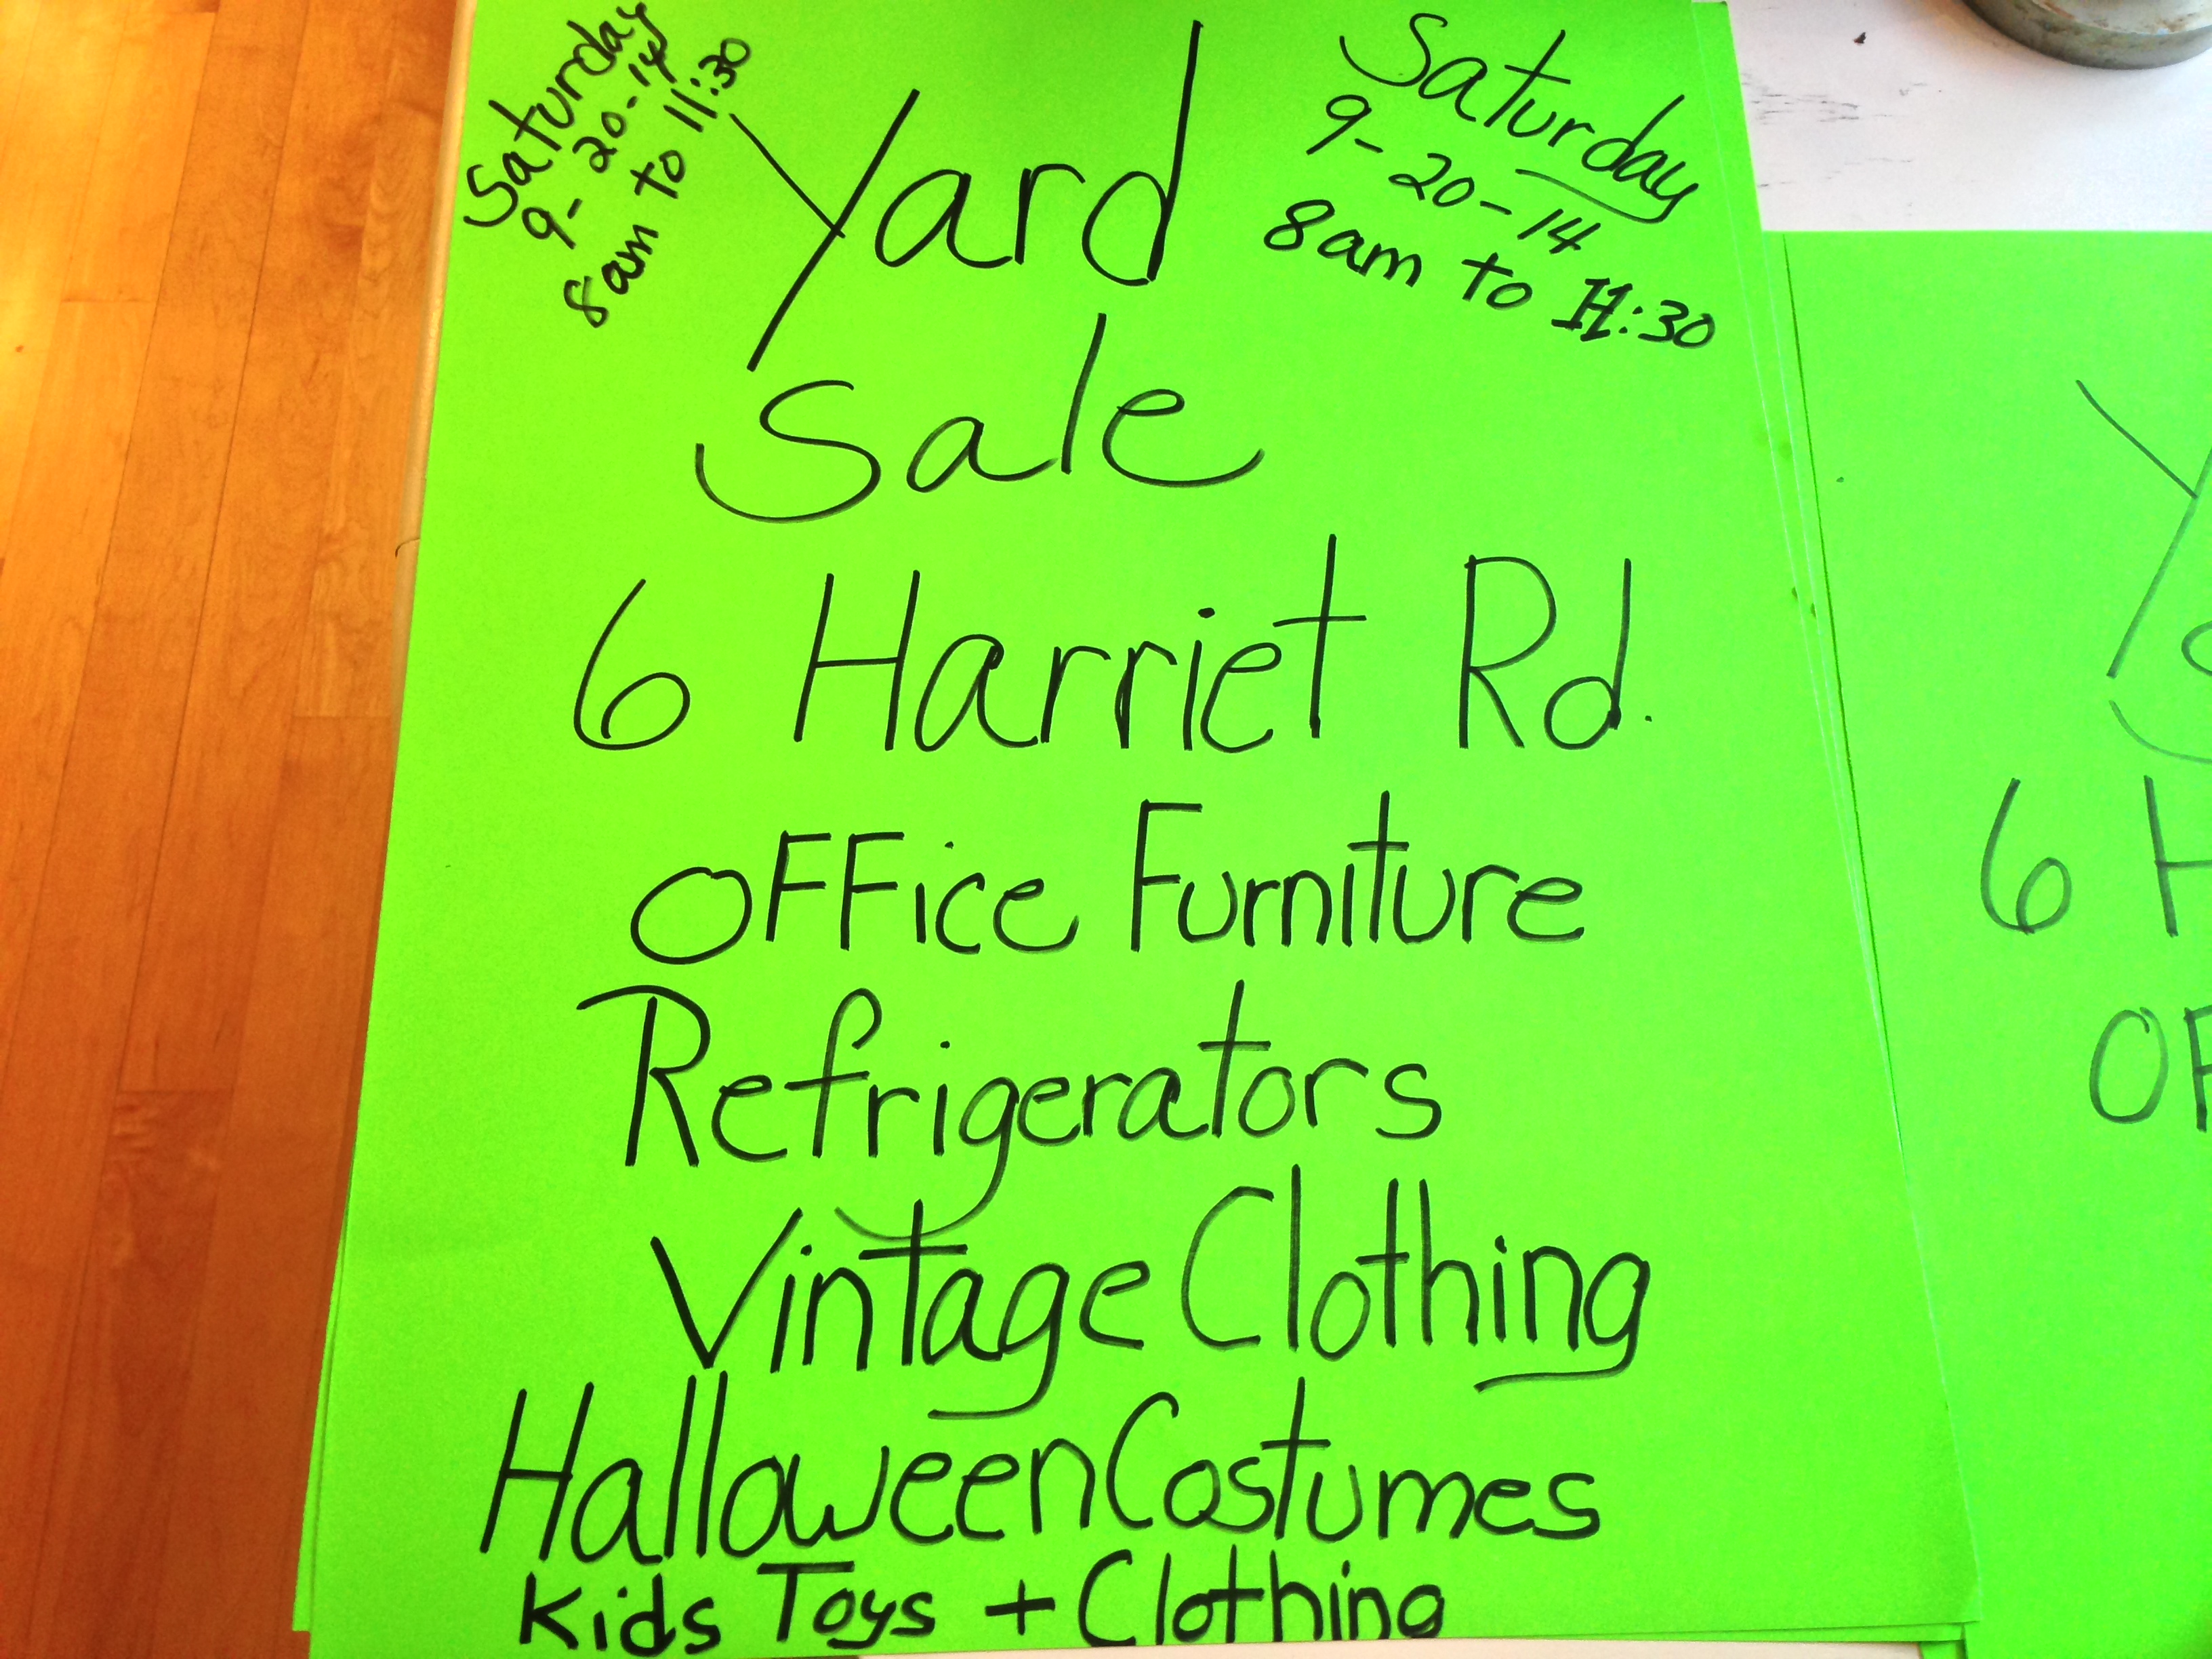 Saturday
9-20-14
8am to 11:30
Saturday
9-20-14
8am to 11:30
Yard
Sale
6 Harriet Rd.
OFFice Furniture
Refrigerators
Vintage Clothing
Halloween Costumes
Kids Toys + Clothing
6 H
OF